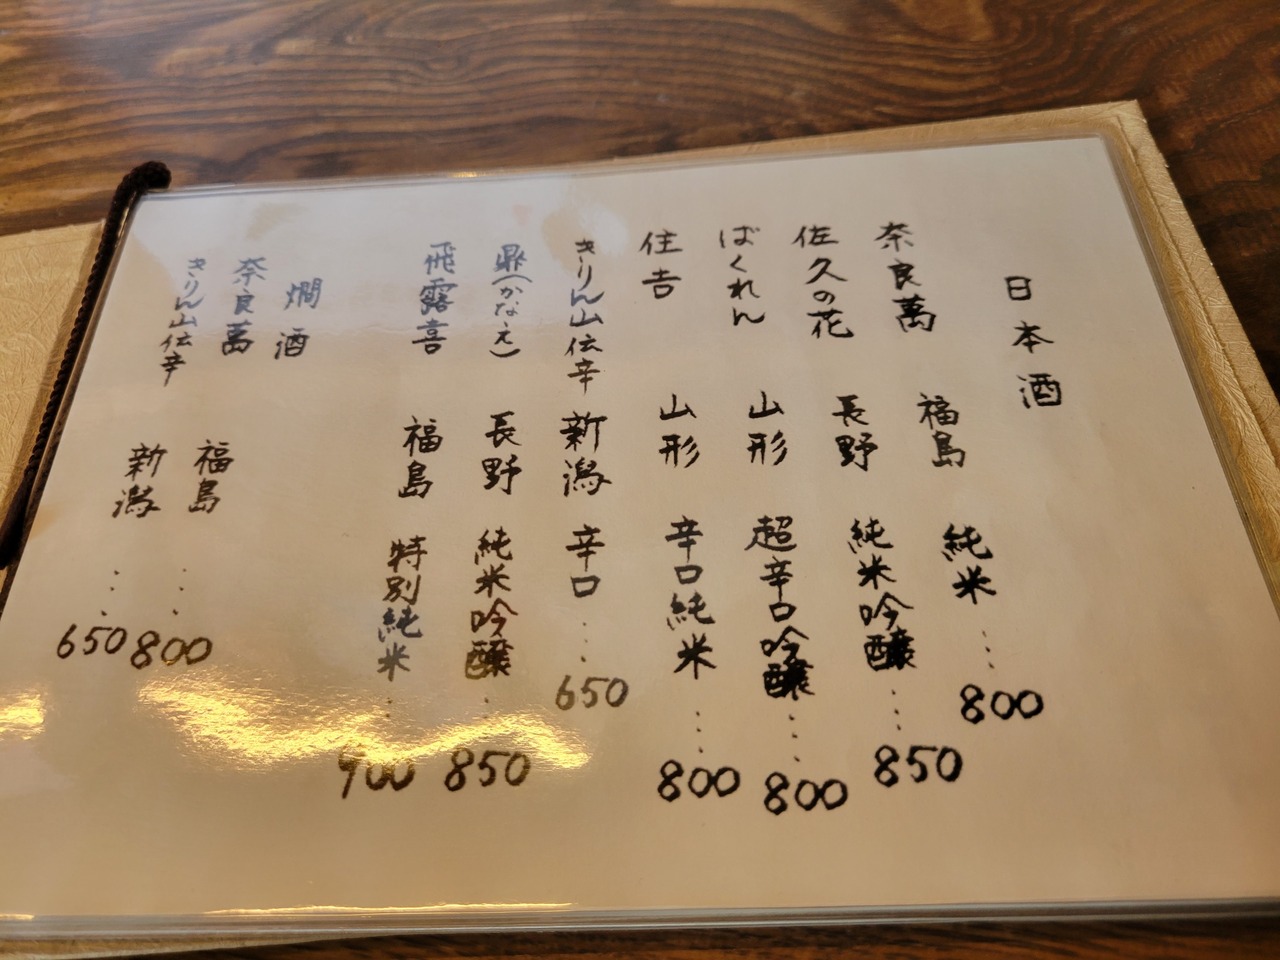 日本酒
奈良萬 福島 純米 ・・・ 800
佐久の花 長野 純米吟醸 ・・・ 850
ばくれん 山形 超辛口吟醸 ・・・ 800
住吉 山形 辛口純米 ・・・ 800
きりん山伝辛 新潟 辛口 ・・・ 650
鼎(かなえ) 長野 純米吟醸 ・・・ 850
飛露喜 福島 特別純米 ・・・ 900
燗酒
奈良萬 福島 ・・・ 800
きりん山伝辛 新潟 ・・・ 650